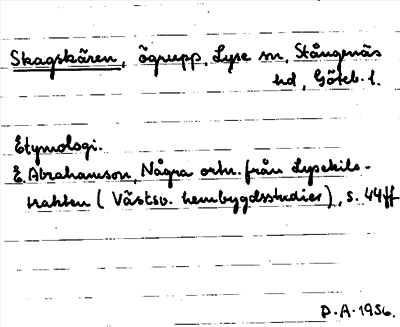 Skagskären, ögrupp, Lyse sn, Stångenäs
hd, Göteb. l.
Etymologi.
E. Abrahamson, Några ortn. från Lysekils-
trakten (Västsv. hembygdsstudier), s. 44ff
P.A. 1956.